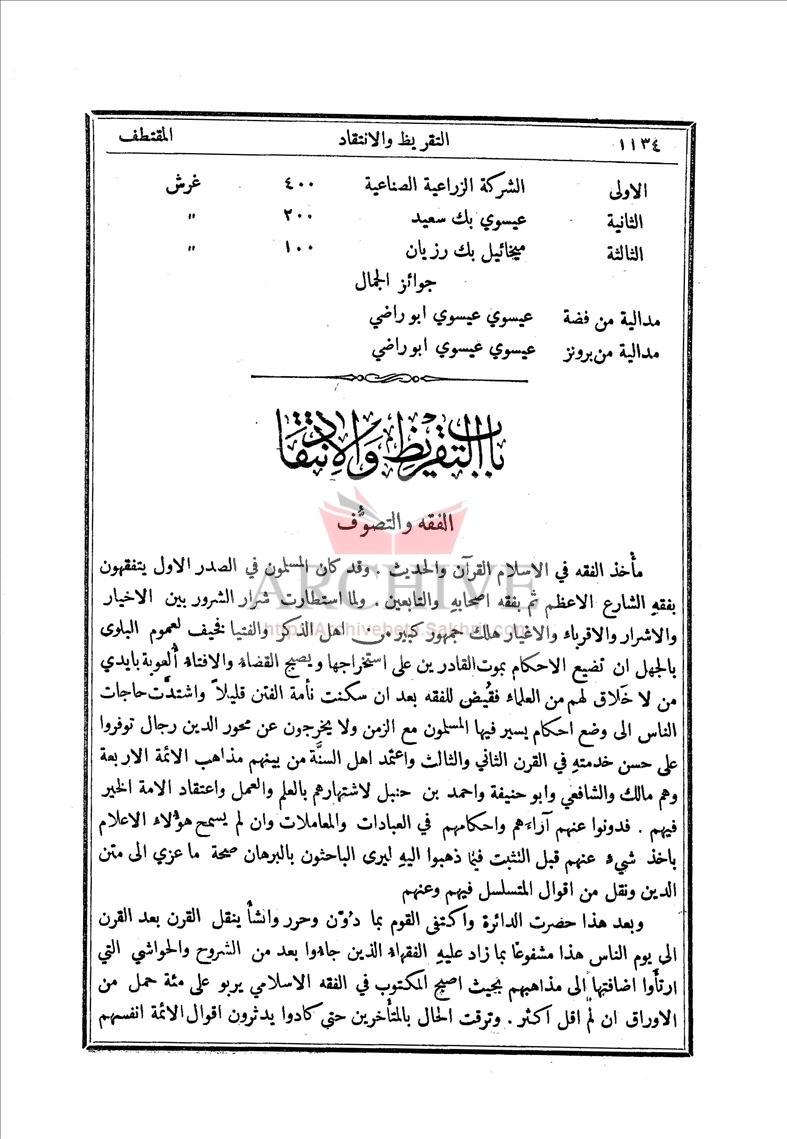 ١١٣٤ التقريظ والانتقاد المقتطف
الاولى الشركة الزراعية الصناعية ٤٠٠ غرش
الثانية عيسوي بك سعيد ٢٠٠ "
الثالثة ميخائيل بك رزيان ١٠٠ "
جوائز الجمال
مدالية من فضة عيسوي عيسوي ابو راضي
مدالية من برونز عيسوي عيسوي ابو راضي
باب التقريظ والانتقاد
الفقه والتصوُّف
مأخذ الفقه في الاسلام القرآن والحديث . وقد كان المسلمون في الصدر الاول يتفقهون
بفقه الشارع الاعظم ثم بفقه اصحابهِ والتابعين . ولما استطارت شرار الشرور بين الاخيار
والاشرار والاقرباء والاغيار هلك جمهور كبير من اهل الذكر والفتيا فخيف لعموم البلوى
بالجهل ان تضيع الاحكام بموت القادرين على استخراجها ويصبح القضاء والافتاء أُلعوبة بايدي
من لا خَلاق لهم من العلماء فقُيض للفقه بعد ان سكنت نأمة الفتن قليلاً واشتدَّت حاجات
الناس الى وضع احكام يسير فيها المسلمون مع الزمن ولا يخرجون عن محور الدين رجال توفروا
على حسن خدمتهِ في القرن الثاني والثالث واعتمد اهل السنَّة من بينهم مذاهب الائمة الاربعة
وهم مالك والشافعي وابو حنيفة واحمد بن حنبل لاشتهارهم بالعلم والعمل واعتقاد الامة الخير
فيهم . فدونوا عنهم آراءهم واحكامهم في العبادات والمعاملات وان لم يسمح هؤلاء الاعلام
باخذ شيء عنهم قبل التثبت فيما ذهبوا اليهِ ليرى الباحثون بالبرهان صحة ما عزي الى متن
الدين ونقل من اقوال المتسلسل فيهم وعنهم
وبعد هذا حضرت الدائرة واكتفى القوم بما دُوّن وحرر وانشأ ينقل القرن بعد القرن
الى يوم الناس هذا مشفوعًا بما زاد عليهِ الفقهاء الذين جاءوا بعد من الشروح والحواشي التي
ارتأوا اضافتها الى مذاهبهم بحيث اصبح المكتوب في الفقه الاسلامي يربو على مئة حمل من
الاوراق ان لم اقل اكثر . وترقت الحال بالمتأخرين حتى كادوا يدثرون اقوال الائمة انفسهم
ARCHIVE
http://Archivebeta.Sakhrit.com